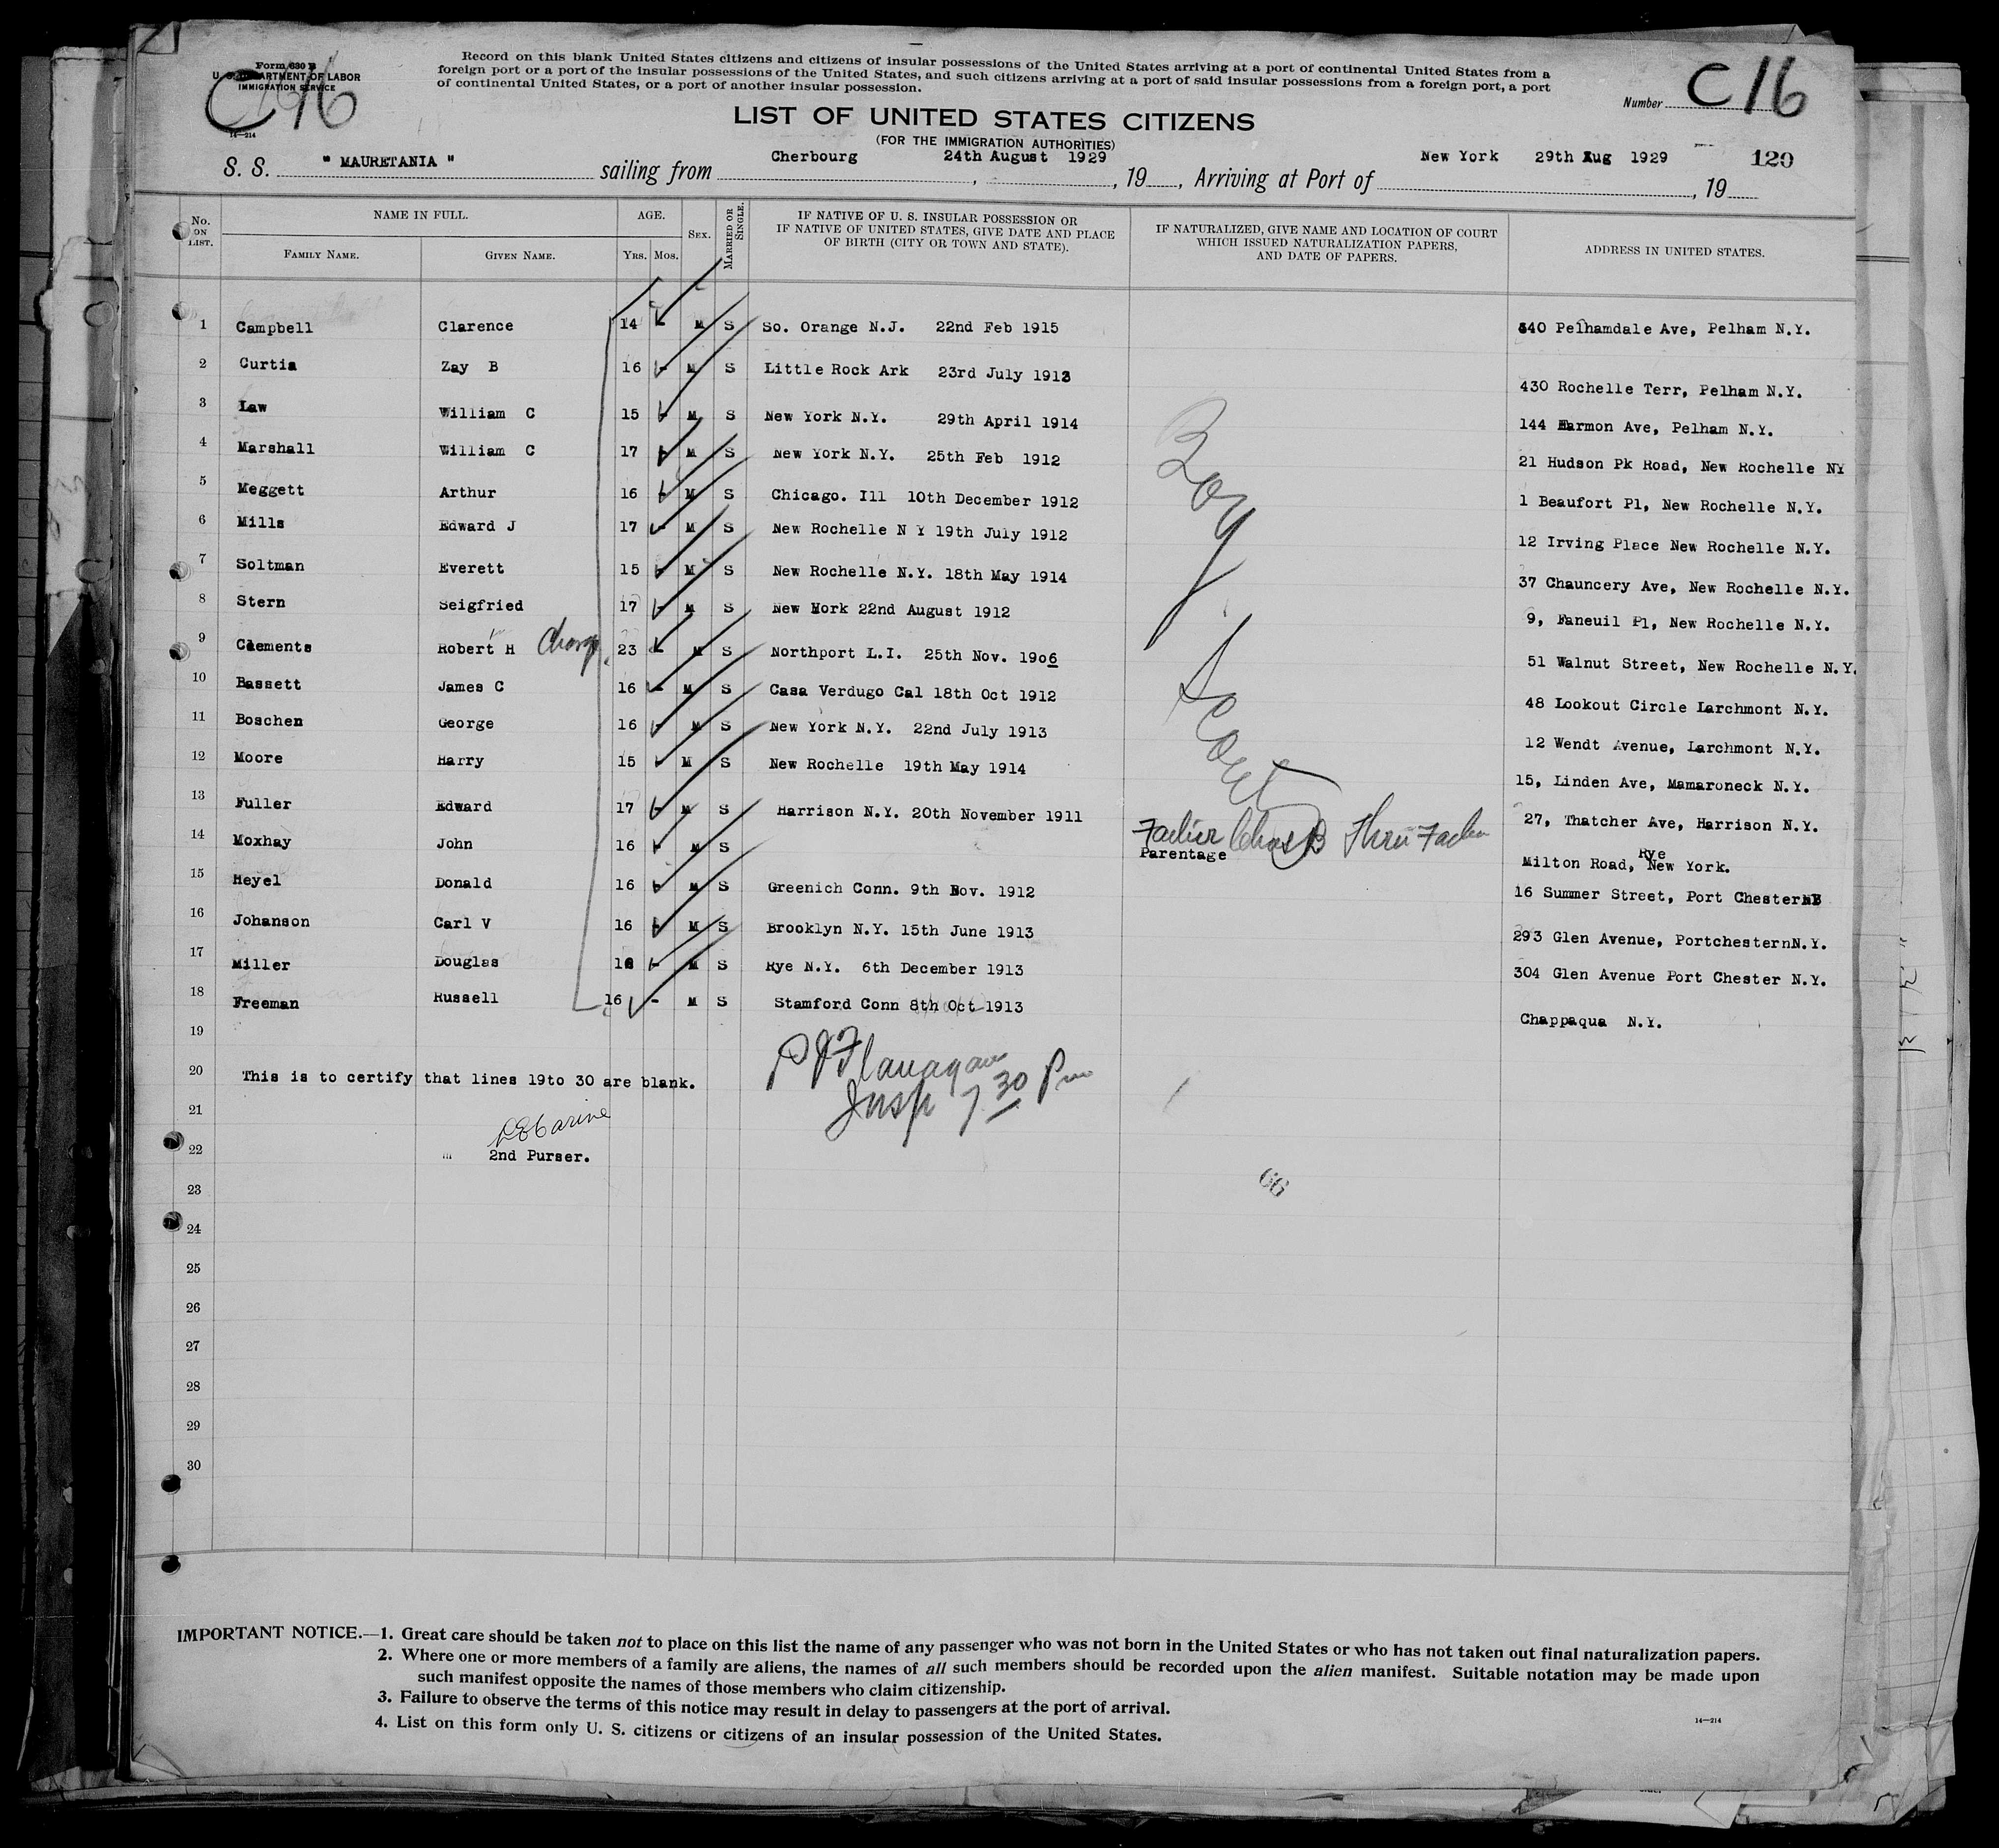 Form 630 B
U. S. DEPARTMENT OF LABOR
IMMIGRATION SERVICE
C 16
14—214
Record on this blank United States citizens and citizens of insular possessions of the United States arriving at a port of continental United States from a
foreign port or a port of the insular possessions of the United States, and such citizens arriving at a port of said insular possessions from a foreign port, a port
of continental United States, or a port of another insular possession.
Number C 16
LIST OF UNITED STATES CITIZENS
(FOR THE IMMIGRATION AUTHORITIES)
S. S. " MAURETANIA " sailing from Cherbourg , 24th August 1929 , 19 , Arriving at Port of New York 29th Aug 1929 , 19
120
No. ON LIST. NAME IN FULL. AGE. SEX. MARRIED OR SINGLE. IF NATIVE OF U. S. INSULAR POSSESSION OR IF NATIVE OF UNITED STATES, GIVE DATE AND PLACE OF BIRTH (CITY OR TOWN AND STATE). IF NATURALIZED, GIVE NAME AND LOCATION OF COURT WHICH ISSUED NATURALIZATION PAPERS, AND DATE OF PAPERS. ADDRESS IN UNITED STATES.
FAMILY NAME. GIVEN NAME. YRS. MOS.
1 Campbell Clarence 14 - M S So. Orange N.J. 22nd Feb 1915 540 Pelhamdale Ave, Pelham N.Y.
2 Curtia Zay B 16 - M S Little Rock Ark 23rd July 1913 430 Rochelle Terr, Pelham N.Y.
3 Law William C 15 - M S New York N.Y. 29th April 1914 144 Harmon Ave, Pelham N.Y.
4 Marshall William C 17 - M S New York N.Y. 25th Feb 1912 21 Hudson Pk Road, New Rochelle NY
5 Meggett Arthur 16 - M S Chicago. Ill 10th December 1912 1 Beaufort Pl, New Rochelle N.Y.
6 Mills Edward J 17 - M S New Rochelle N Y 19th July 1912 12 Irving Place New Rochelle N.Y.
7 Soltman Everett 15 - M S New Rochelle N.Y. 18th May 1914 37 Chauncery Ave, New Rochelle N.Y.
8 Stern Seigfried 17 - M S New Hork 22nd August 1912 9, Faneuil Pl, New Rochelle N.Y.
9 Clements Robert H 23 - M S Northport L.I. 25th Nov. 1906 51 Walnut Street, New Rochelle N.Y.
10 Bassett James C 16 - M S Casa Verdugo Cal 18th Oct 1912 48 Lookout Circle Larchmont N.Y.
11 Boschen George 16 - M S New York N.Y. 22nd July 1913 12 Wendt Avenue, Larchmont N.Y.
12 Moore Harry 15 - M S New Rochelle 19th May 1914 15, Linden Ave, Mamaroneck N.Y.
13 Fuller Edward 17 - M S Harrison N.Y. 20th November 1911 27, Thatcher Ave, Harrison N.Y.
Boy Scout
Father Chas B Thru Father
14 Moxhay John 16 - M S Parentage Milton Road, Rye New York.
15 Heyel Donald 16 - M S Greenich Conn. 9th Nov. 1912 16 Summer Street, Port Chester
16 Johanson Carl V 16 - M S Brooklyn N.Y. 15th June 1913 293 Glen Avenue, PortchesternN.Y.
17 Miller Douglas 16 - M S Rye N.Y. 6th December 1913 304 Glen Avenue Port Chester N.Y.
18 Freeman Russell 16 - M S Stamford Conn 8th Oct 1913 Chappaqua N.Y.
19
P J Flanagan
20 This is to certify that lines 19to 30 are blank.
Insp 7.30 Pm
21
22 2nd Purser.
23
66
24
25
26
27
28
29
30
IMPORTANT NOTICE.—1. Great care should be taken not to place on this list the name of any passenger who was not born in the United States or who has not taken out final naturalization papers.
2. Where one or more members of a family are aliens, the names of all such members should be recorded upon the alien manifest. Suitable notation may be made upon
such manifest opposite the names of those members who claim citizenship.
3. Failure to observe the terms of this notice may result in delay to passengers at the port of arrival.
4. List on this form only U. S. citizens or citizens of an insular possession of the United States.
14—214